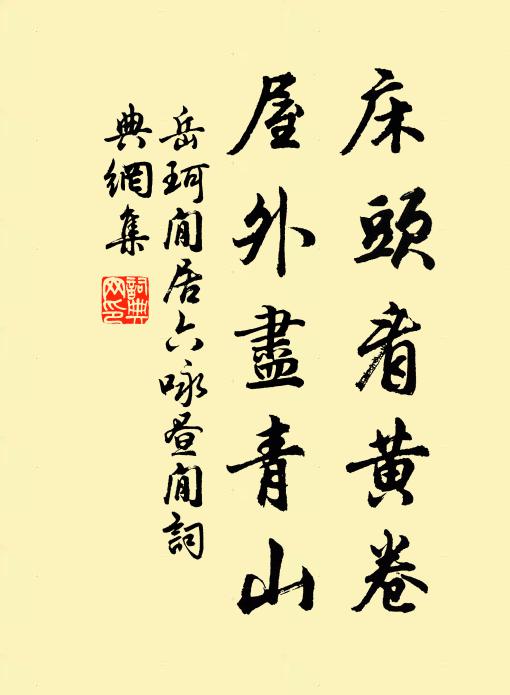 床頭看黄卷
屋外盡青山
岳珂閒居六咏昼閒詞
典網集
詞典网印